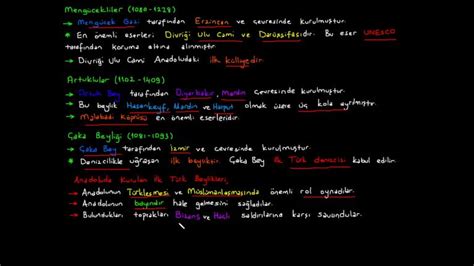 Mengücekliler (1080-1228)
→ Mengücek Gazi tarafından Erzincan ve çevresinde kurulmuştur.
* En önemli eserleri Divriği Ulu Cami ve Darüşşifasıdır. Bu eser UNESCO
tarafından koruma altına alınmıştır.
→ Divriği Ulu Cami Anadoludaki ilk külliyedir.
Artuklular (1102-1409)
→ Artuk Bey tarafından Diyarbakır, Mardin çevresinde kurulmuştur.
* Bu beylik Hasankeyf, Mardin ve Harput olmak üzere üç kola ayrılmıştır.
→ Malabadi Köprüsü en önemli eserleridir.
Çaka Beyliği (1081-1093)
→ Çaka Bey tarafından İzmir ve çevresinde kurulmuştur.
* Denizcilikle uğraşan ilk beyliktir. Çaka Bey ilk Türk denizci kabul edilir.
Anadoluda Kurulan ilk Türk Beylikleri,
→ Anadolunun Türkleşmesi ve Müslümanlaşmasında önemli rol oynadılar.
→ Anadolunun bayındır hale gelmesini sağladılar.
→ Bulundukları toprakları Bizans ve Haçlı saldırılarına karşı savundular.